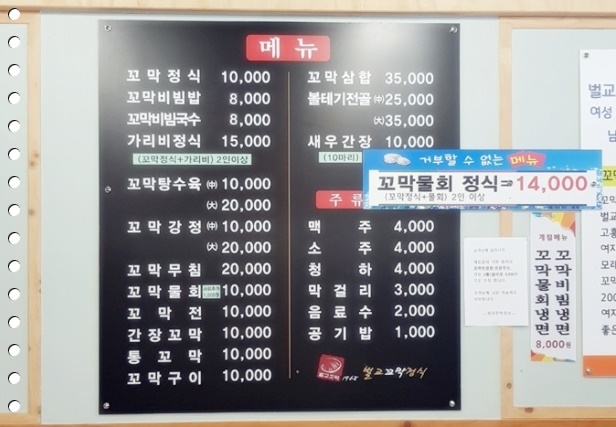 메뉴
꼬막정식 10,000
꼬막비빔밥 8,000
꼬막비빔국수 8,000
가리비정식 15,000
(꼬막정식+가리비) 2인이상
꼬막탕수육 ㊥ 10,000
㊅ 20,000
꼬막강정 ㊥ 10,000
㊅ 20,000
꼬막무침 20,000
꼬막물회 10,000
꼬막전 10,000
간장꼬막 10,000
통꼬막 10,000
꼬막구이 10,000
꼬막삼합 35,000
볼테기전골 ㊥ 25,000
㊅ 35,000
새우간장 10,000
(10마리)
주류
맥주 4,000
소주 4,000
청하 4,000
막걸리 3,000
음료수 2,000
공기밥 1,000
벌교꼬막정식
거부할 수 없는 메뉴
꼬막물회 정식=14,000
(꼬막정식+물회) 2인 이상
계절메뉴
꼬막비빔냉면
꼬막물회냉면
8,000원
벌교
여성